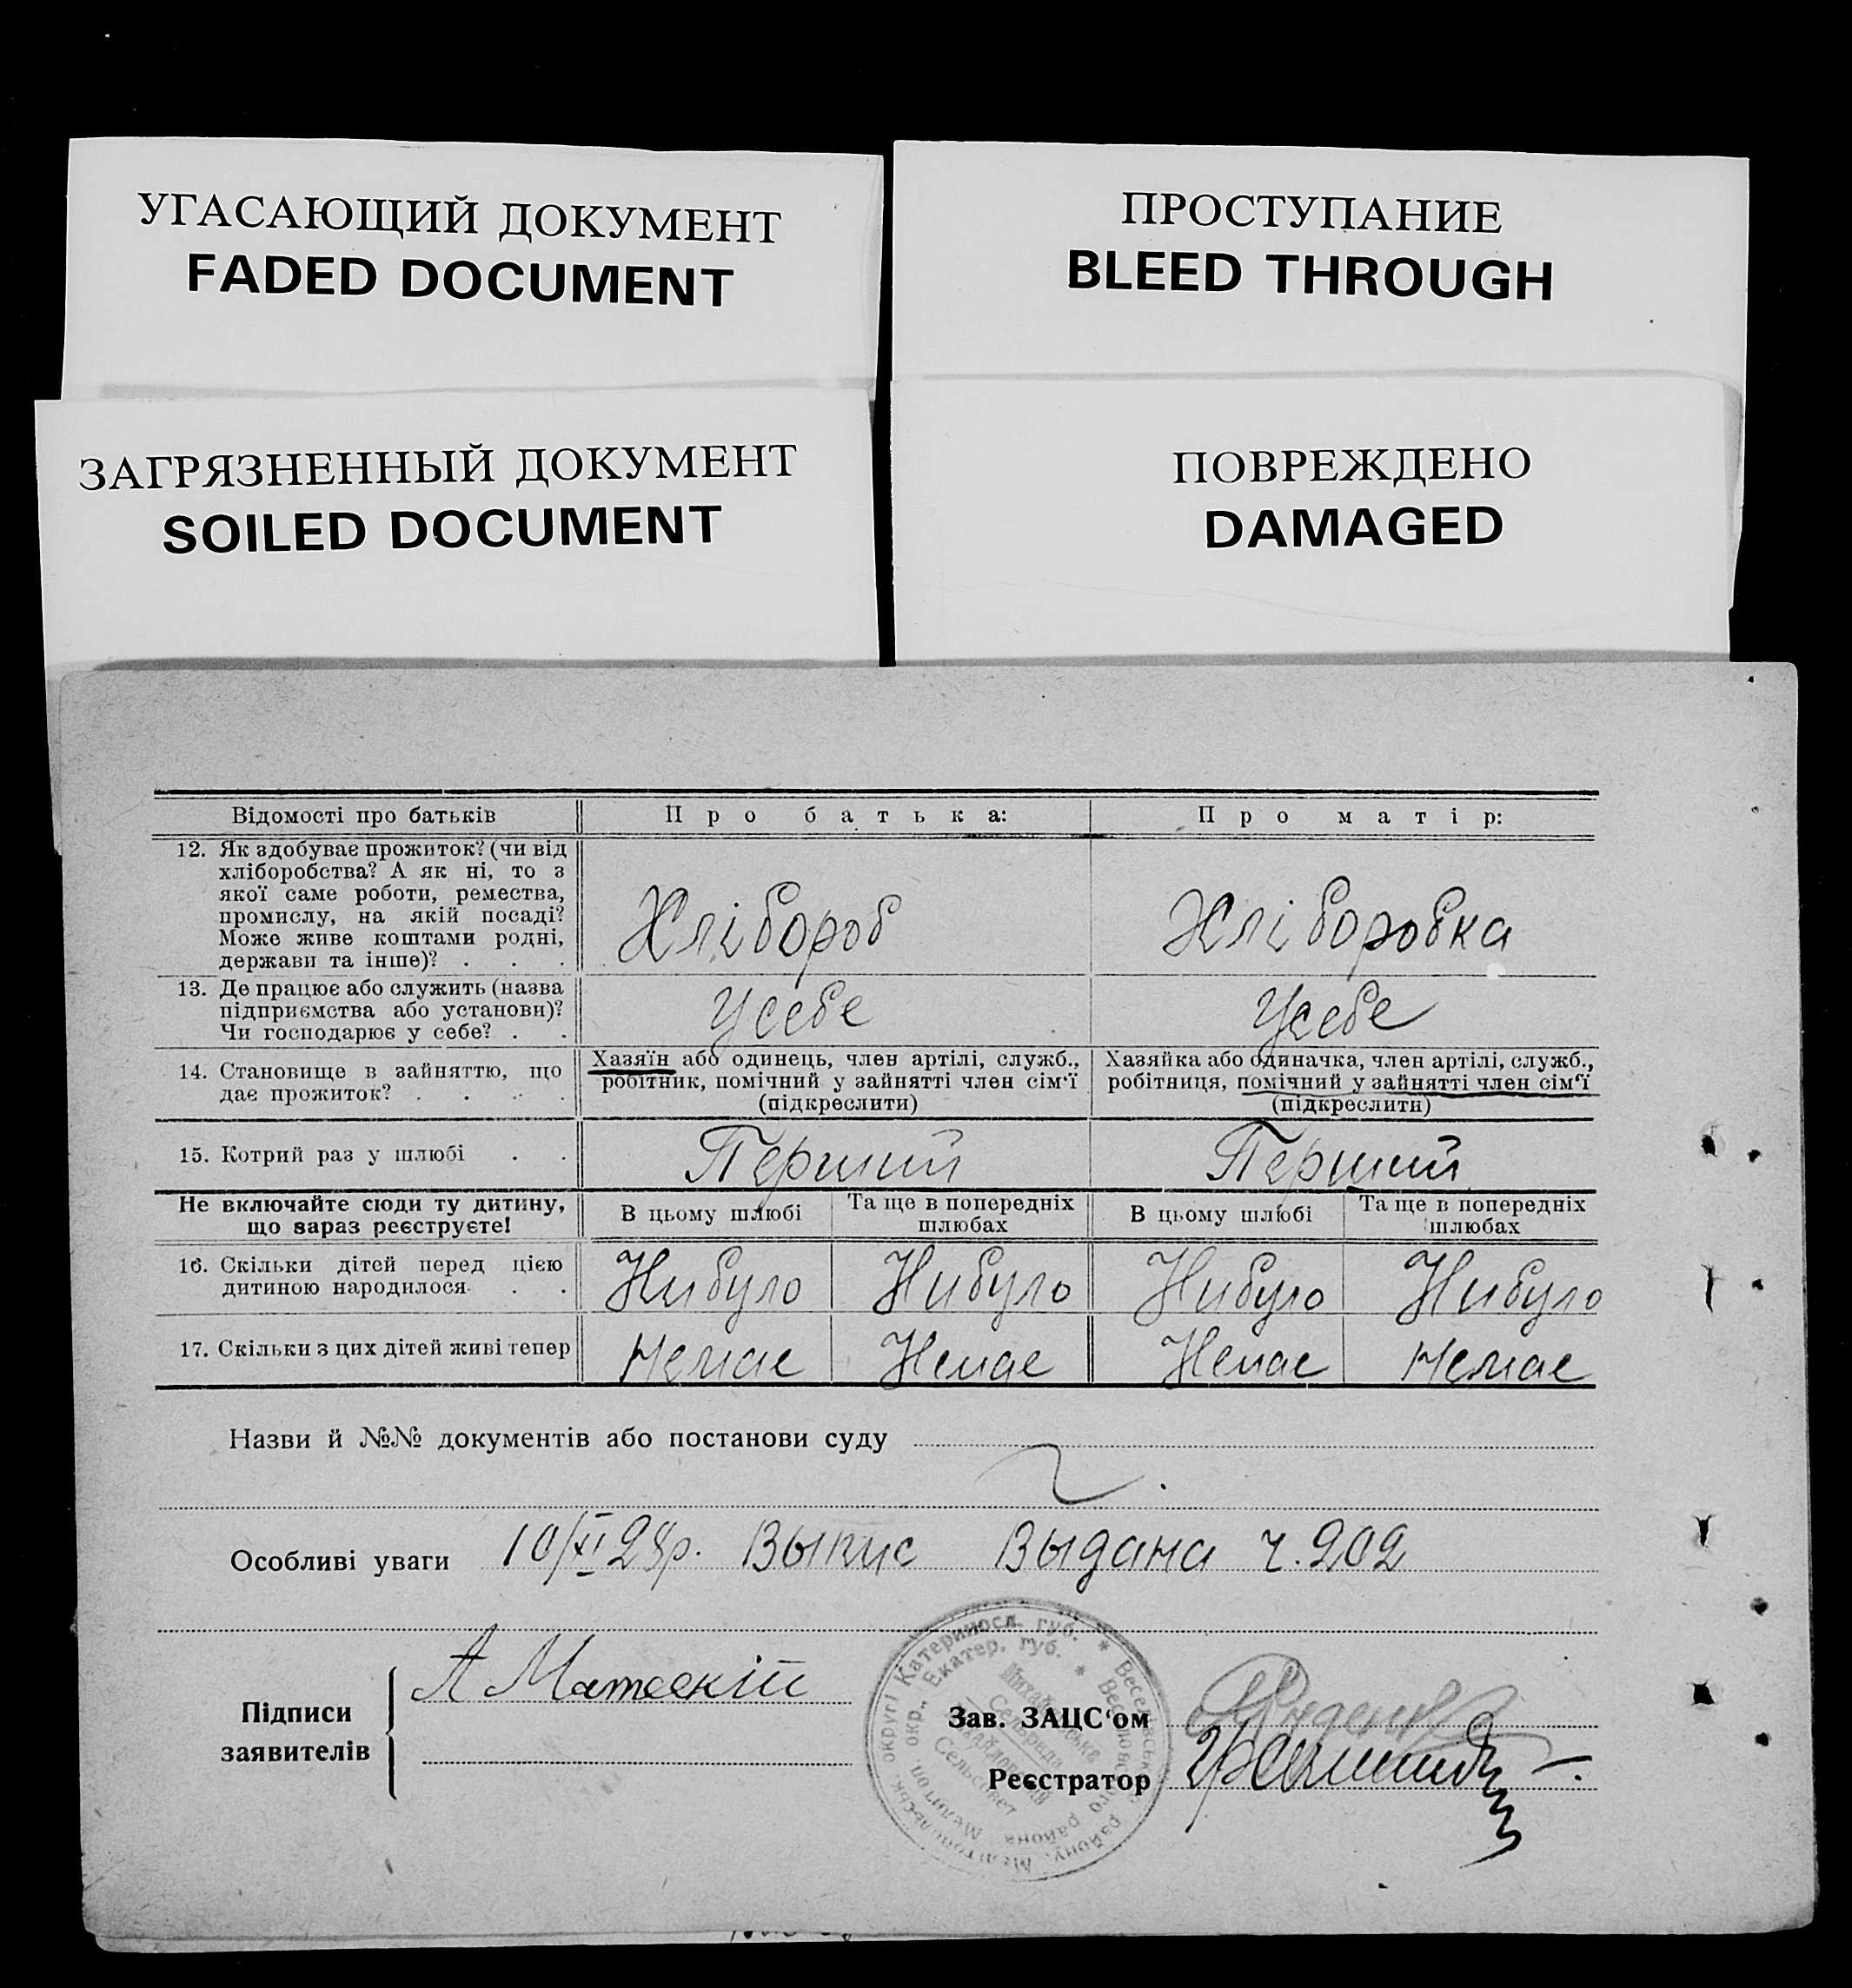 УГАСАЮЩИЙ ДОКУМЕНТ
FADED DOCUMENT
ПРОСТУПАНИЕ
BLEED THROUGH
ЗАГРЯЗНЕННЫЙ ДОКУМЕНТ
SOILED DOCUMENT
ПОВРЕЖДЕНО
DAMAGED
Відомості про батьків
Про батька:
Про матір:
12. Як здобуває прожиток? (чи від
хліборобства? А як ні, то з
якої саме роботи, ремества,
промислу, на якій посаді?
Може живе коштами родні,
держави та інше)? . . .
Хлібороб
Хліборобка
13. Де працює або служить (назва
підприємства або установи)?
Чи господарює у себе? . .
Усебе
Усебе
14. Становище в зайняттю, що
дає прожиток? . . . .
Хазяїн або одинець, член артілі, служб.,
робітник, помічний у зайнятті член сім'ї
(підкреслити)
Хазяйка або одиначка, член артілі, служб.,
робітниця, помічний у зайнятті член сім'ї
(підкреслити)
15. Котрий раз у шлюбі . .
Перший
Перший
Не включайте сюди ту дитину,
що зараз реєструєте!
В цьому шлюбі
Та ще в попередніх
шлюбах
В цьому шлюбі
Та ще в попередніх
шлюбах
16. Скільки дітей перед цією
дитиною народилося . .
Нибуло
Нибуло
Нибуло
Нибуло
17. Скільки з цих дітей живі тепер
Немає
Немає
Немає
Немає
Назви й №№ документів або постанови суду
Особливі уваги 10/XI 28р. Выпис Выдана ч. 202
Підписи
заявителів
А
Зав. ЗАЦС'ом
Реєстратор
округі Катериносл. губ. * Веселівськ. району, Мелітопольськ.
окр., Екатер. губ. * Веселовского района Мелитоп.
Михайлівська
Сельрада
Михайловский
Сельсовет